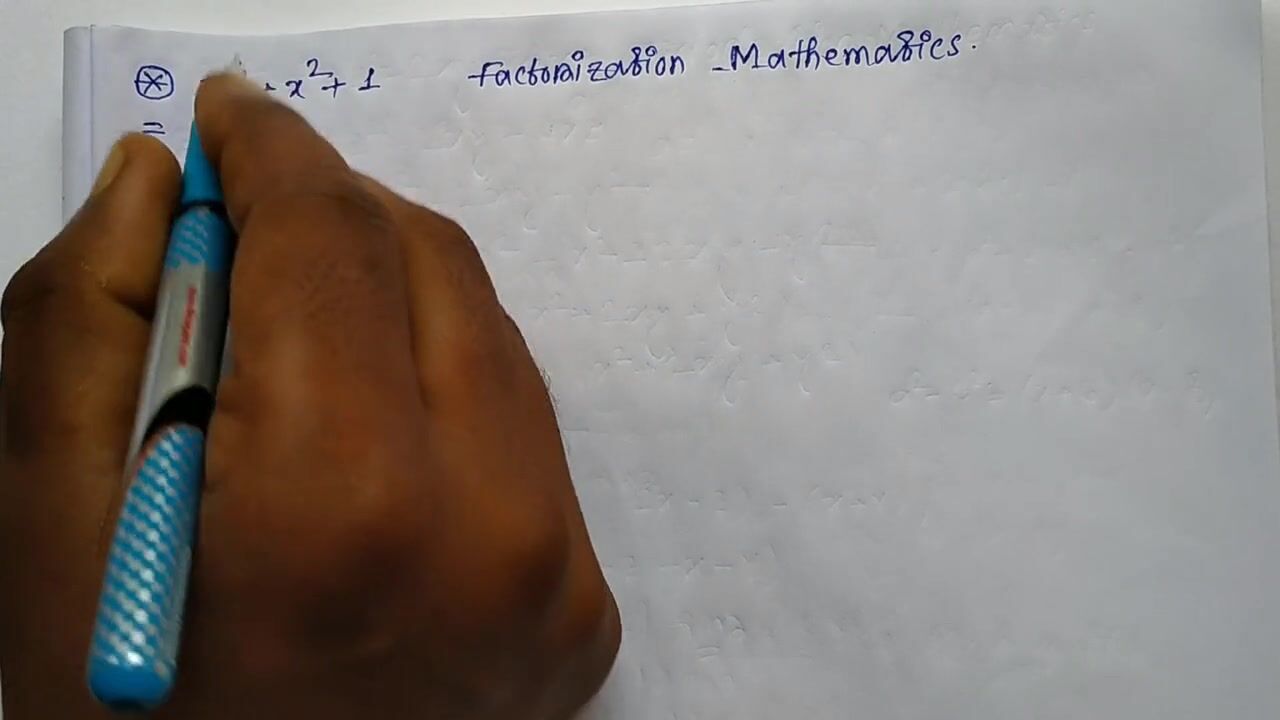 + x² + 1 Factorization - Mathematics.
=